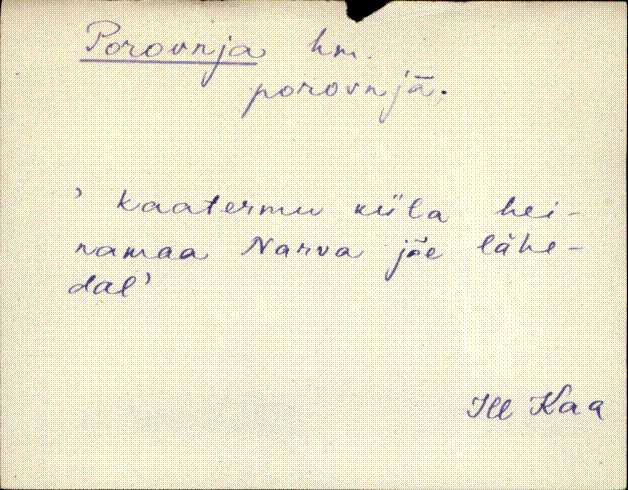 Porovnja hm.
porovnjā.
' Kaatermu küla hei-
namaa Narva jõe lähe-
dal'
Ill Kaa